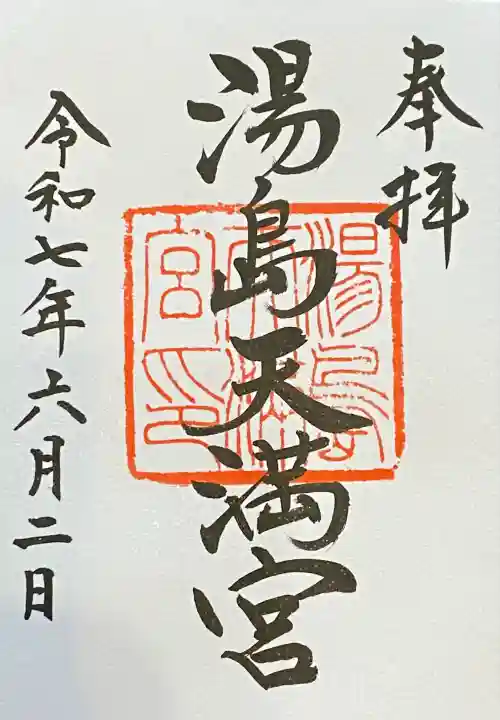 奉拝
湯島天満宮
湯島
天満
宮印
令和七年六月二日